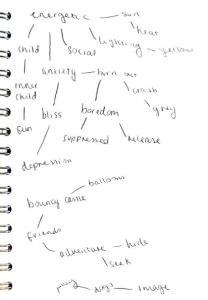 energetic — sun
heat
child social lighting — yellow
anxiety — burn out
inner child
crash
bliss boredom grey
fun
suppressed release
depression
balloons
bouncy castle
friends
adventure — hide
seek
image